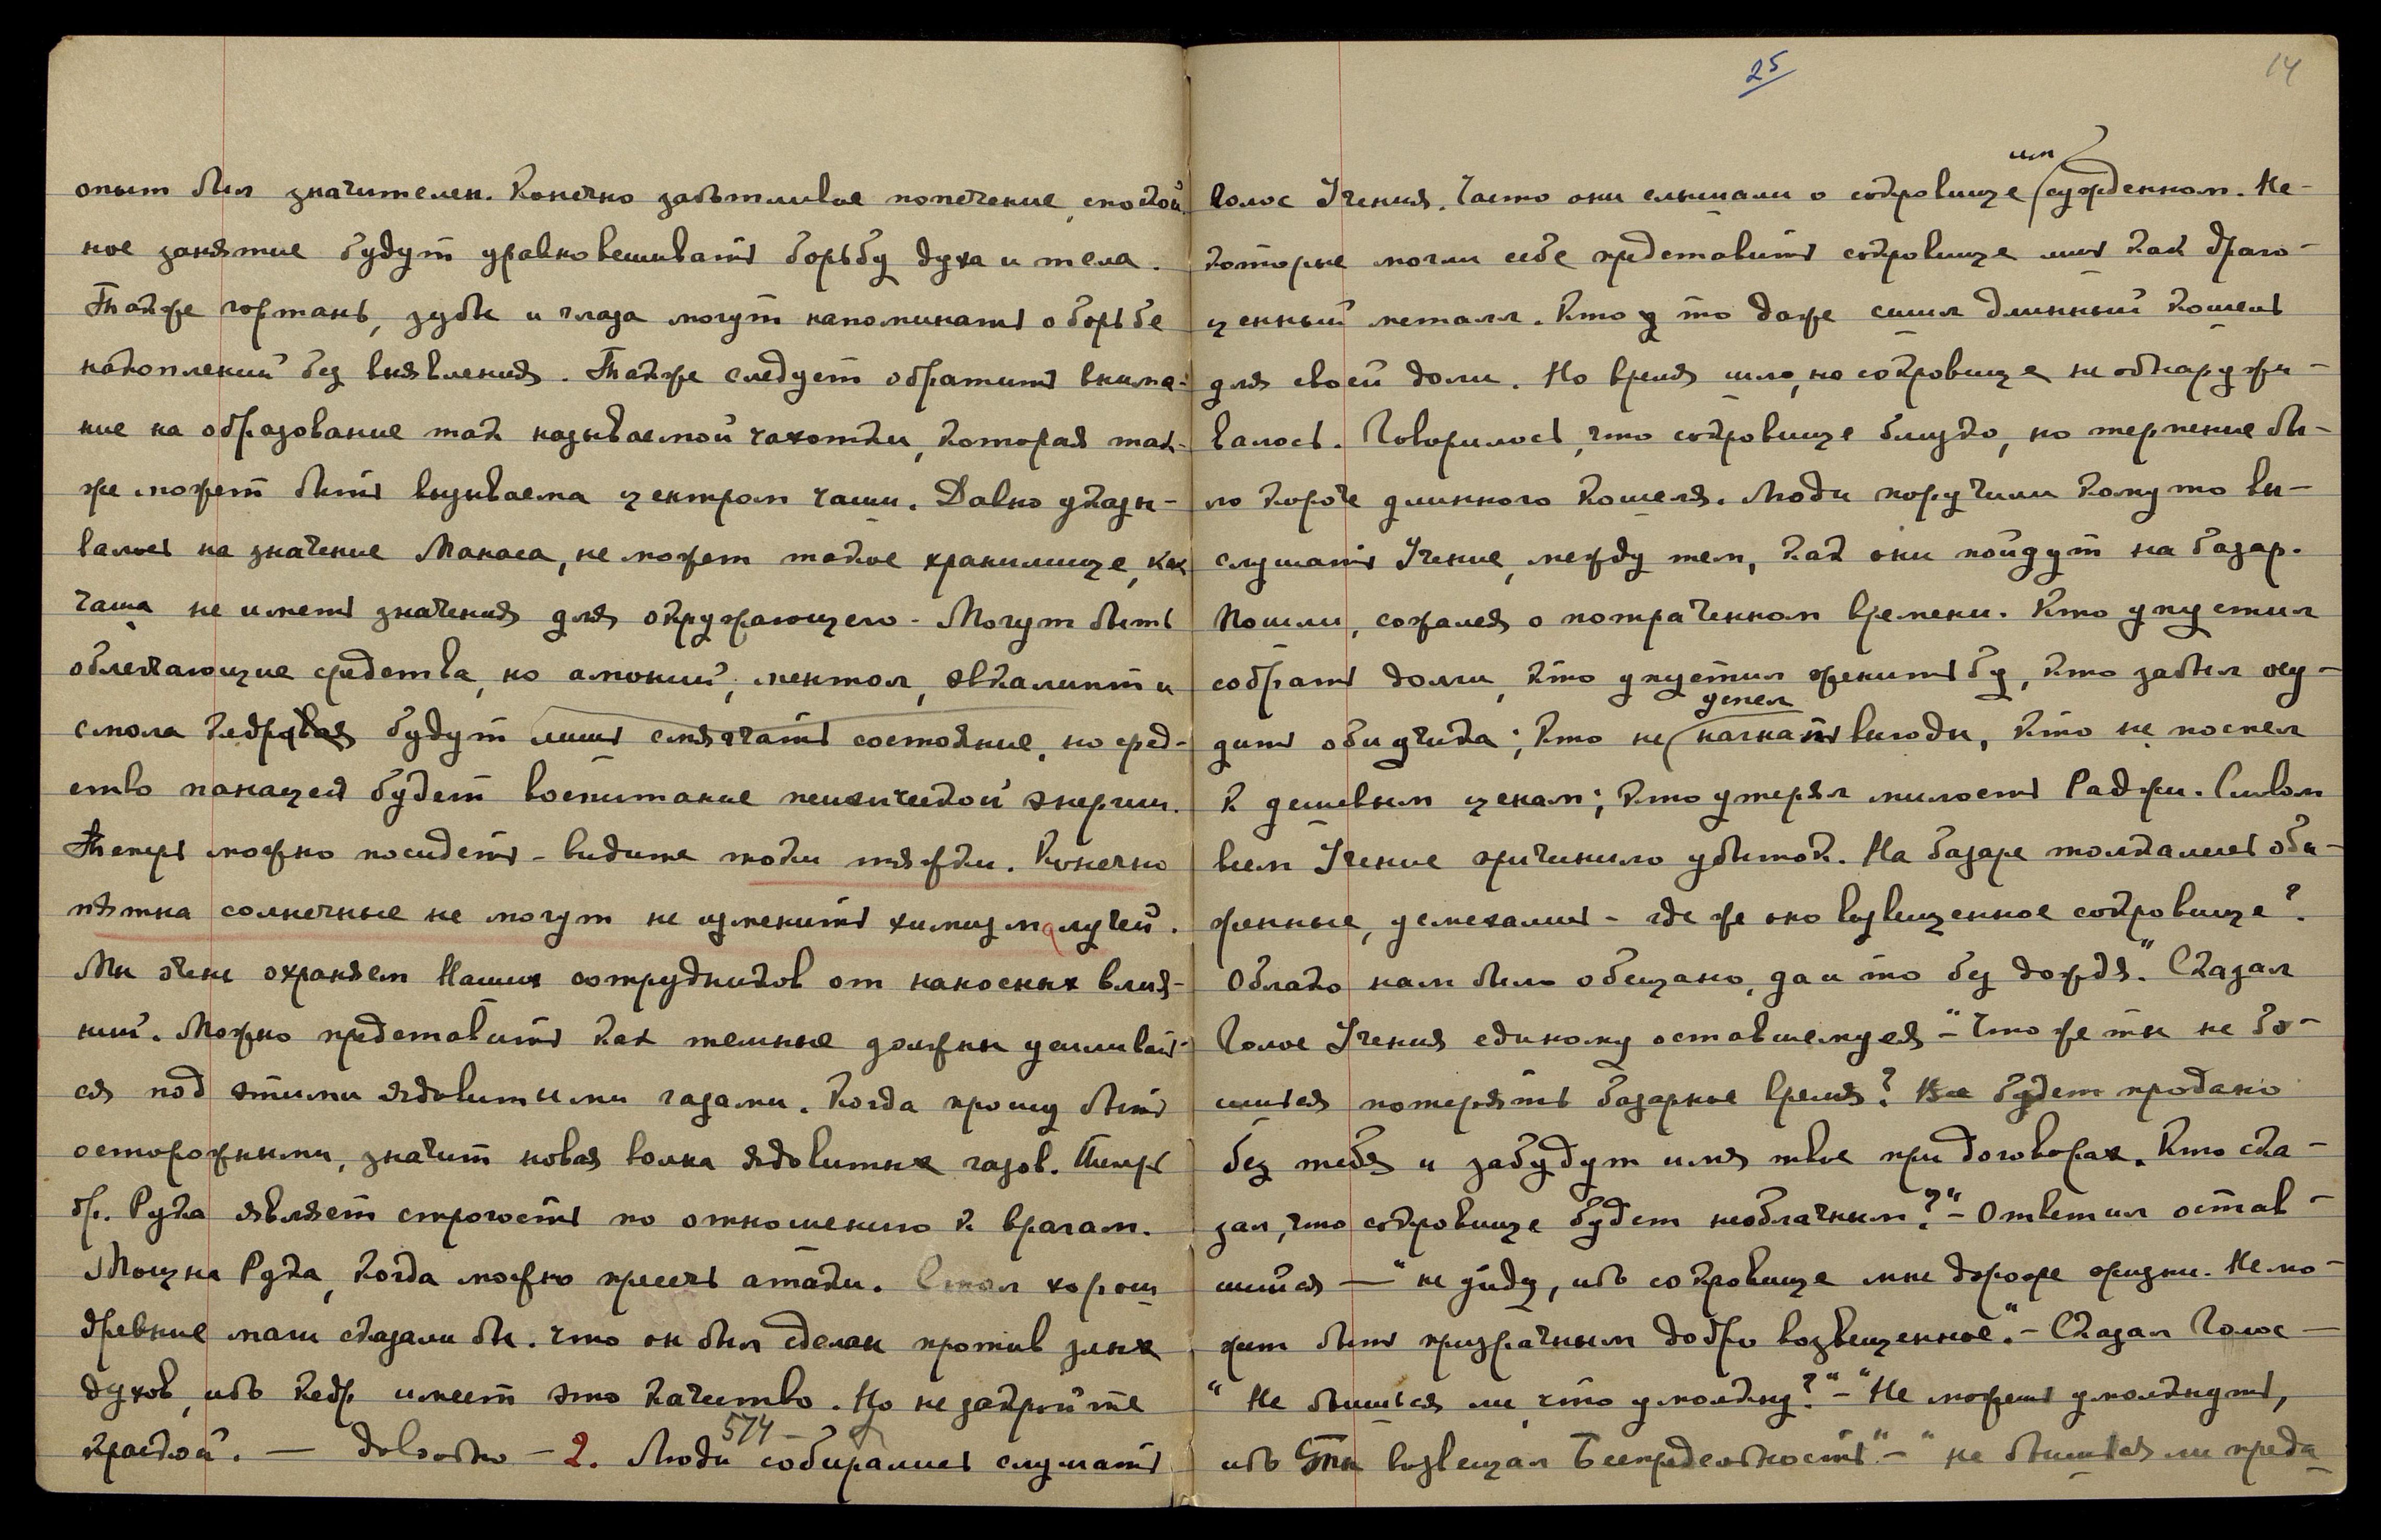 опыт был значителен. Конечно заботливое попечение, спокой-
ное занятие будут уравновешивать борьбу духа и тела.
Также гортань, зубы и глаза могут напоминать о борьбе
накоплений без выявления. Также следует обратить внима-
ние на образование так называемой чахотки, которая так-
же может быть вызываема центром чаши. Давно указы-
валось на значение Манаса, не может такое хранилище, как
чаша не иметь значения для окружающего. Могут быть
облегчающие средства, но амоний, ментол, эвкалипт и
смола кедровая будут лишь смягчать состояние, но сред-
ство панацея будет воспитание психической энергии.
Теперь можно посидеть - видите токи тяжки. Конечно
пятна солнечные не могут не изменить химизма лучей.
Мы очень охраняем Наших сотрудников от наносных влия-
ний. Можно представить как темные должны усиливать-
ся под этими ядовитыми газами. Когда прошу быть
осторожными, значит новая волна ядовитых газов. Теперь
бр. Рука являет строгость по отношению к врагам.
Мощна Рука, когда можно пресечь атаки. Стол хорош
древние маги сказали бы, что он был сделан против злых
духов, ибо кедр имеет это качество. Но не закройте
краской. — довольно -
574 -
2. Люди собирались слушать
25
14
голос Учения. Часто они слышали о сокровище им сужденном. Не-
которые могли себе представить сокровище лишь как драго-
ценный металл. Кто то даже сшил длинный кошель
для своей доли. Но время шло, но сокровище не обнаружи-
валось. Говорилось, что сокровище близко, но терпение бы-
ло короче длинного кошеля. Люди поручили кому то вы-
слушать Учение, между тем, как они пойдут на базар.
Пошли, сожалея о потраченном времени. Кто упустил
собрать долги, кто упустил женитьбу, кто забыл осу-
дить обидчика; кто не успел нагнать выгоды, кто не поспел
к дешевым ценам; кто утерял милость Раджи. Словом
всем Учение причинило убыток. На базаре толкались оби-
женные, усмехались - где же оно возвещенное сокровище?
Облако нам было обещано, да и то без дождя." Сказал
Голос Учения единому оставшемуся - "Что же ты не бо-
ишься потерять базарное время? Все будет продано
без тебя и забудут имя твое при договорах. Кто ска-
зал, что сокровище будет необлачным?" - Ответил остав-
шийся — "не уйду, ибо сокровище мне дороже жизни. Не мо-
жет быть призрачным добро возвещенное". - Сказал Голос —
"Не боишься ли, что умолкну?" - "Не можешь умолкнуть,
ибо Ты возвещал Беспредельность" - "не боишься ли преда